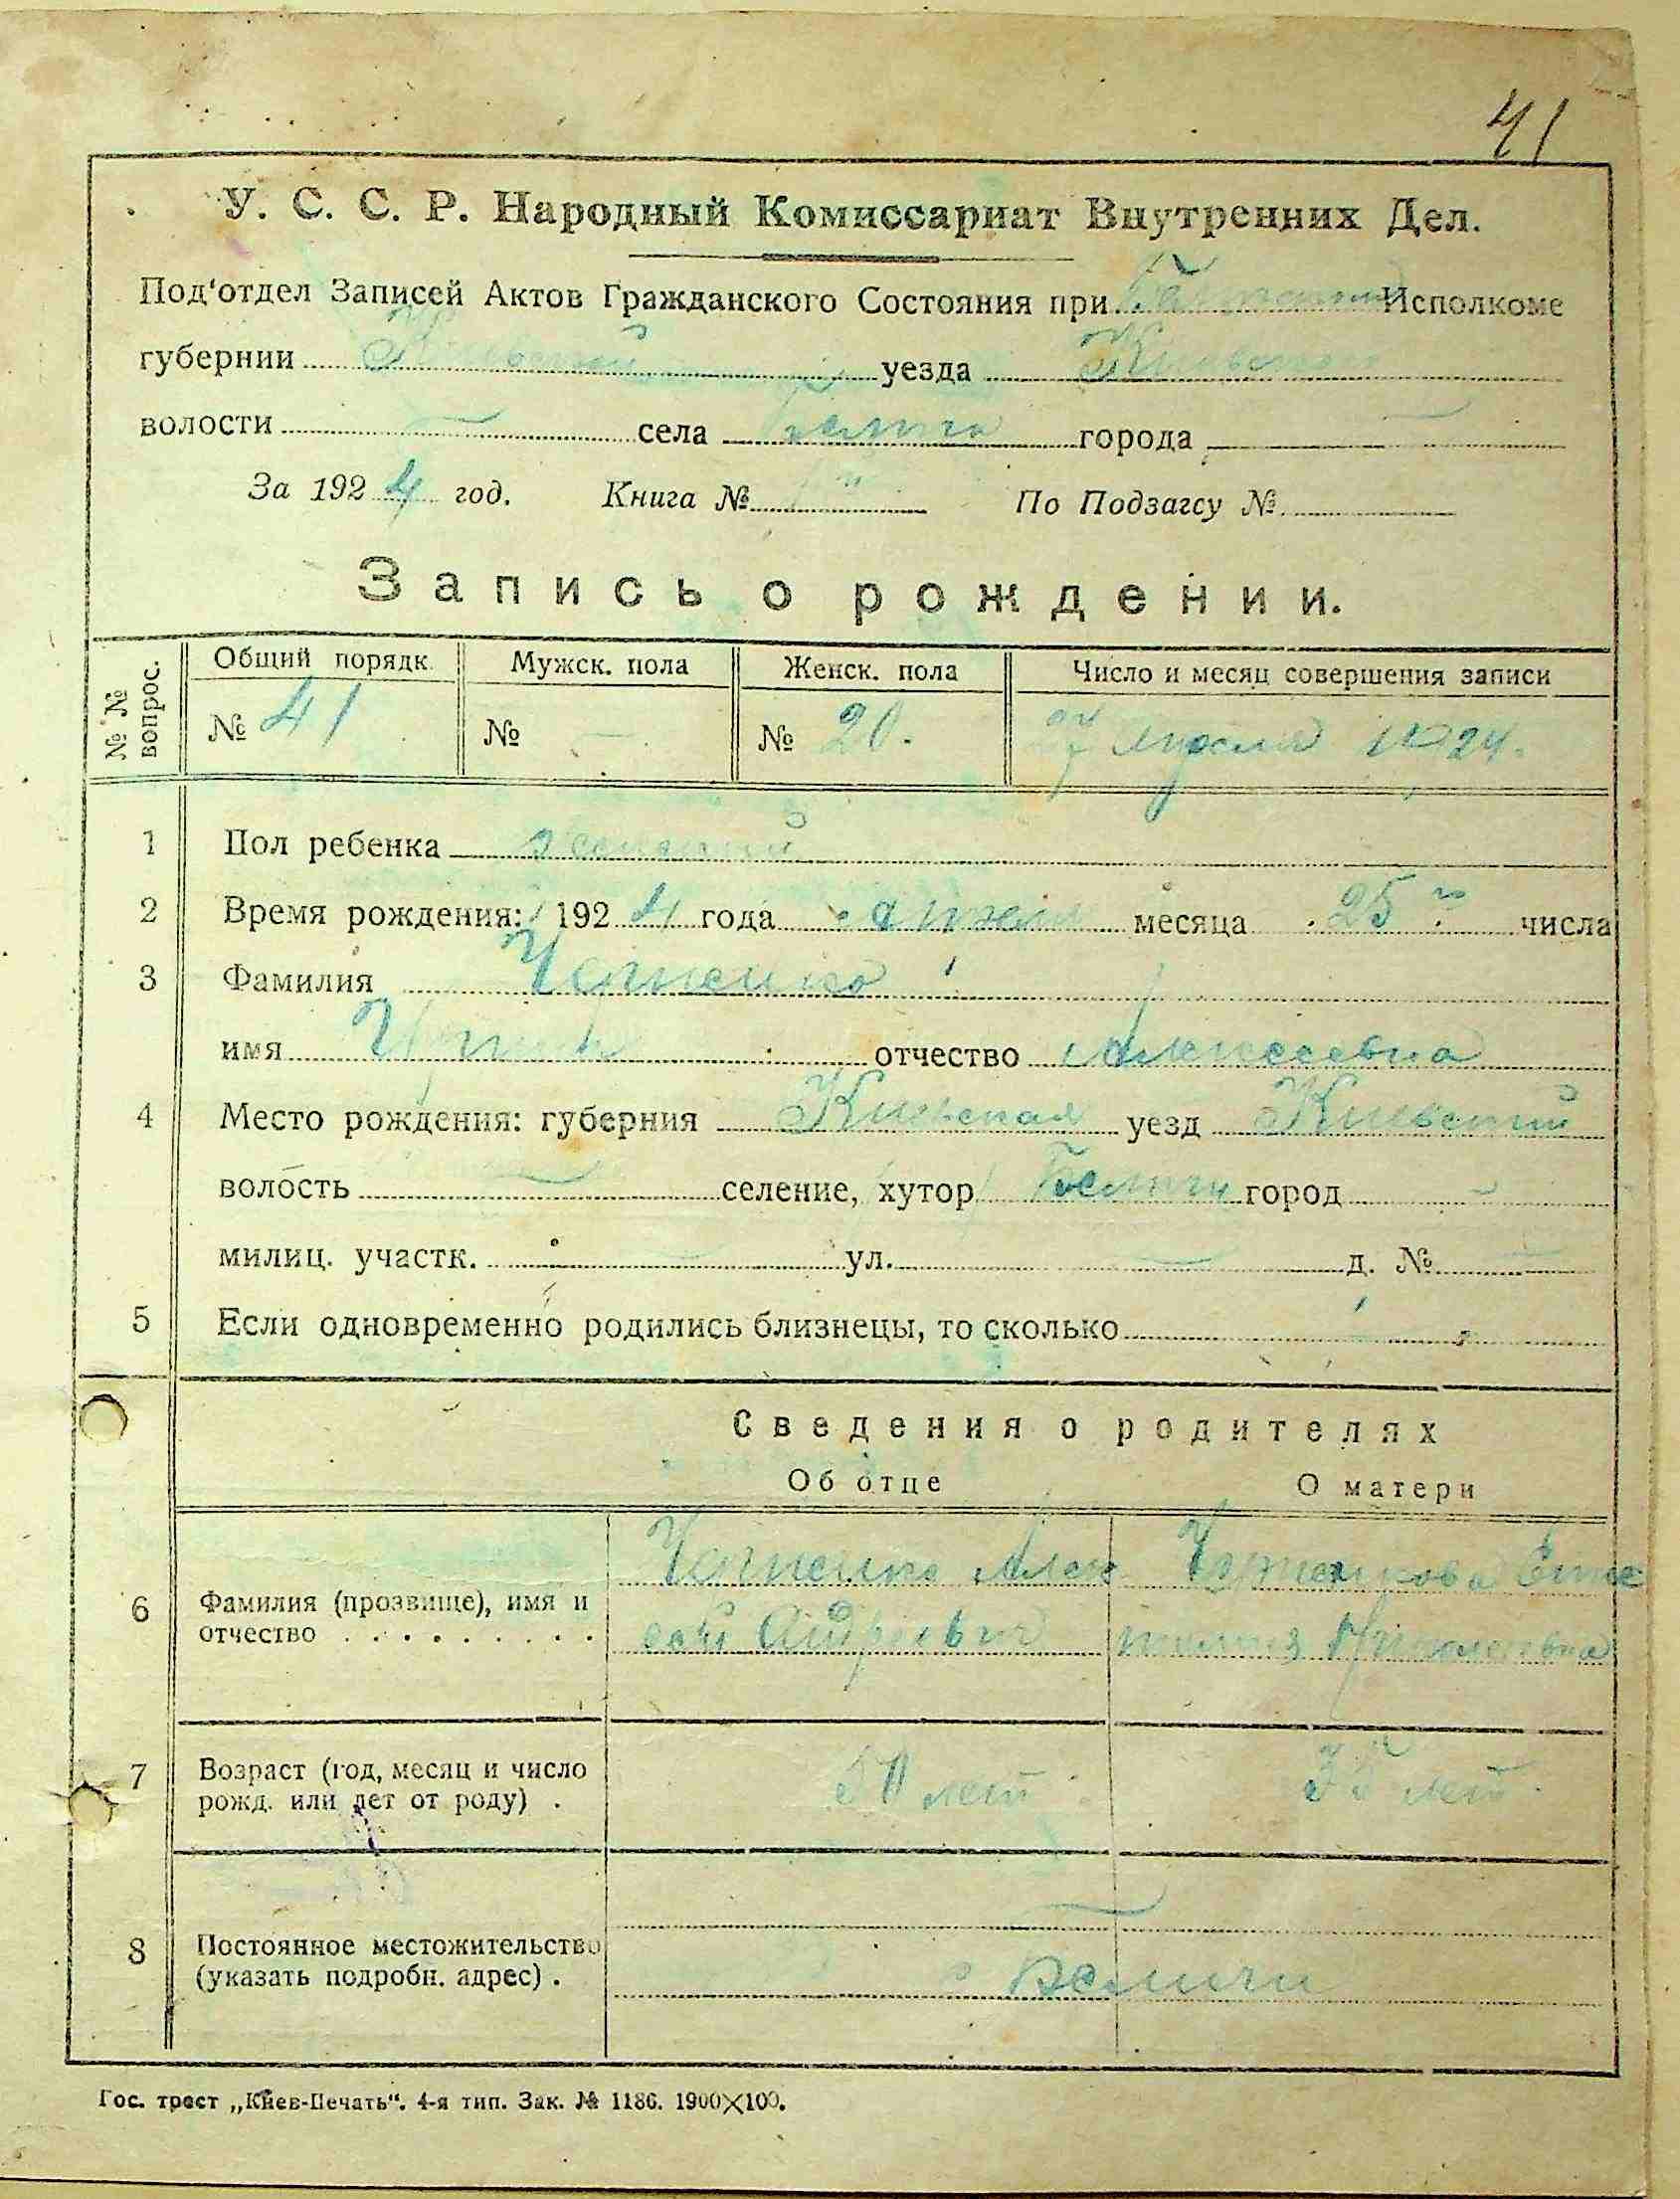 41
У. С. С. Р. Народный Комиссариат Внутренних Дел.
Под'отдел Записей Актов Гражданского Состояния при Исполкоме
губернии Киевской уезда Киевского
волости — села Беличи города —
За 1924 год. Книга № По Подзагсу №
Запись о рождении.
№ № вопрос. Общий порядк. Мужск. пола Женск. пола Число и месяц совершения записи
№ 41 № — № 20. 1924.
1 Пол ребенка женский
2 Время рождения: 1924 года апреля месяца 25го числа
3 Фамилия
имя отчество Алексеевна
4 Место рождения: губерния Киевская уезд Киевский
волость — селение, хутор Беличи город —
милиц. участк. — ул. — д. № —
5 Если одновременно родились близнецы, то сколько
Сведения о родителях
Об отце О матери
6 Фамилия (прозвище), имя и
отчество . . . . . . . . .
7 Возраст (год, месяц и число
рожд. или лет от роду) . лет лет.
8 Постоянное местожительство
(указать подробн. адрес) . с Беличи
Гос. трест „Киев-Печать“. 4-я тип. Зак. № 1186. 1900×100.